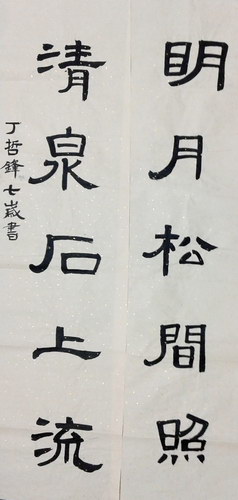 明月松間照
清泉石上流
丁哲鋒七歲書